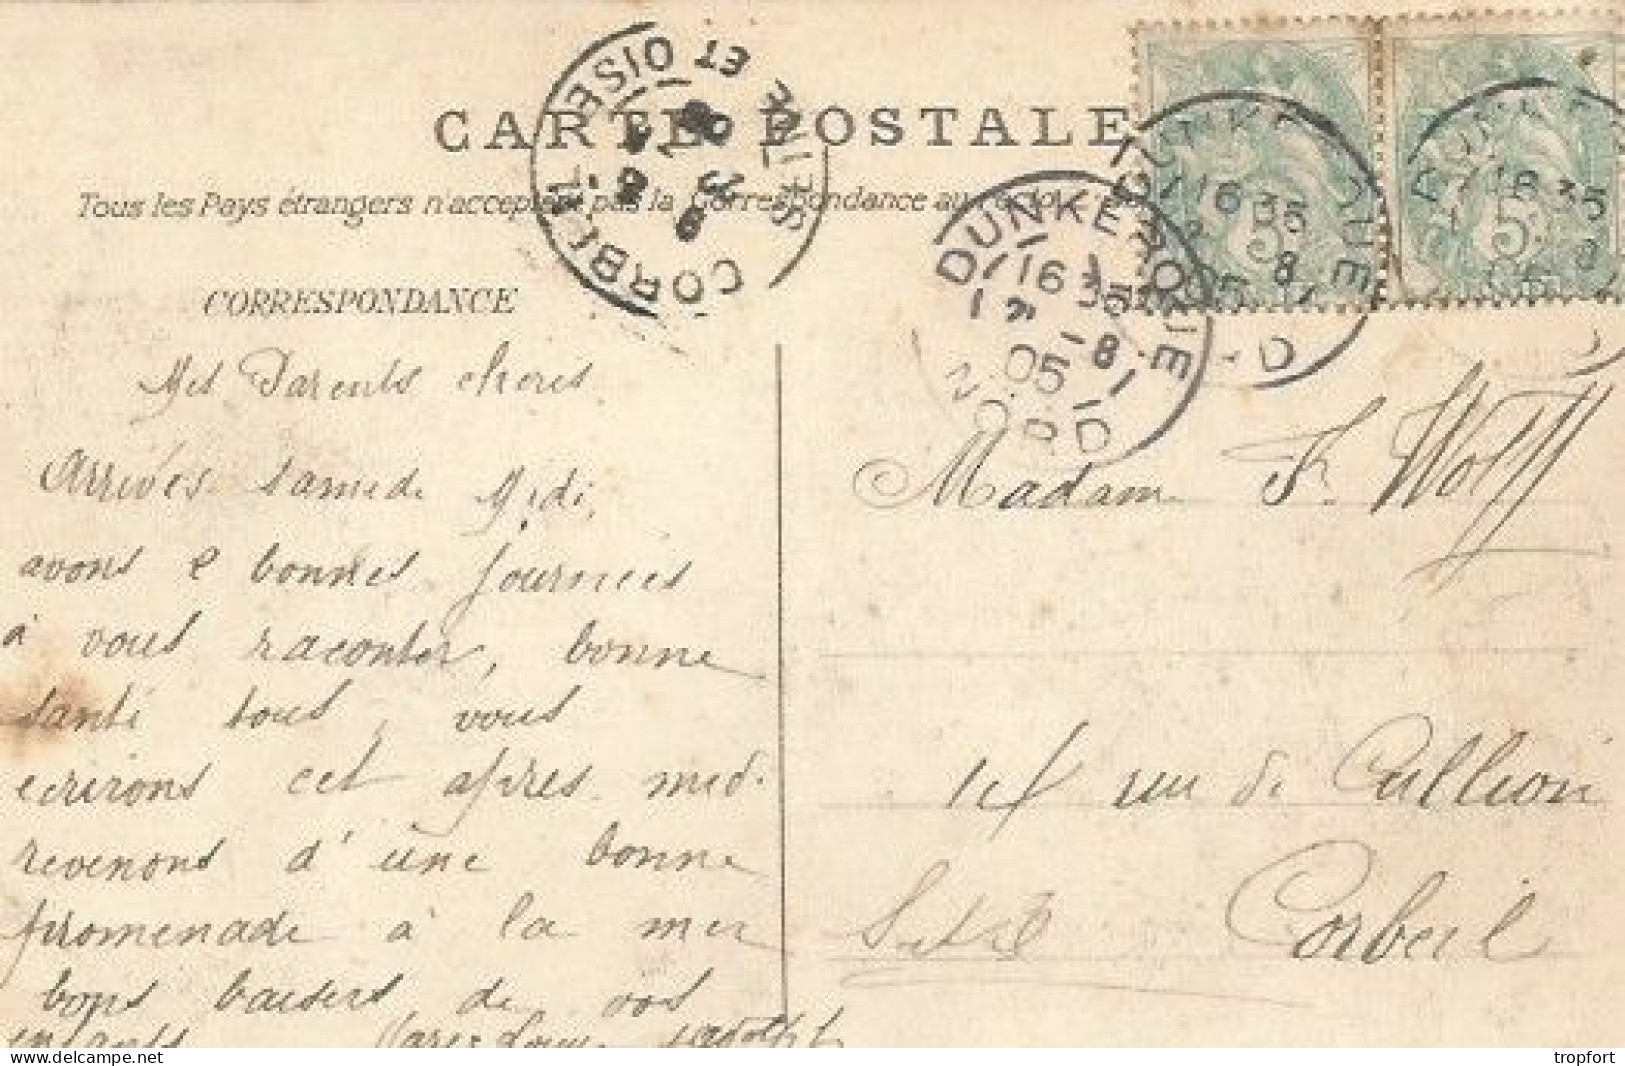 CARTE POSTALE
Tous les Pays étrangers n'acceptent pas la Correspondance au recto
CORRESPONDANCE
CORBEIL
SEINE ET OISE
DUNKERQUE
16 35
2 -8
05
NORD
DUNKERQUE
16 35
-8
05
16 35
8
05
5
5
Mes Parents cheris
Arrivés samedi Midi,
avons 2 bonnes journées
à vous raconter, bonne
santé tous, vous
ecrirons cet apres-mid.
revenons d'une bonne
promenade à la mer
bons baisers de vos
enfants Marie Louise
Madame F. Wolff
rue de
Corbeil
S et O
delcampe.net
tropfort